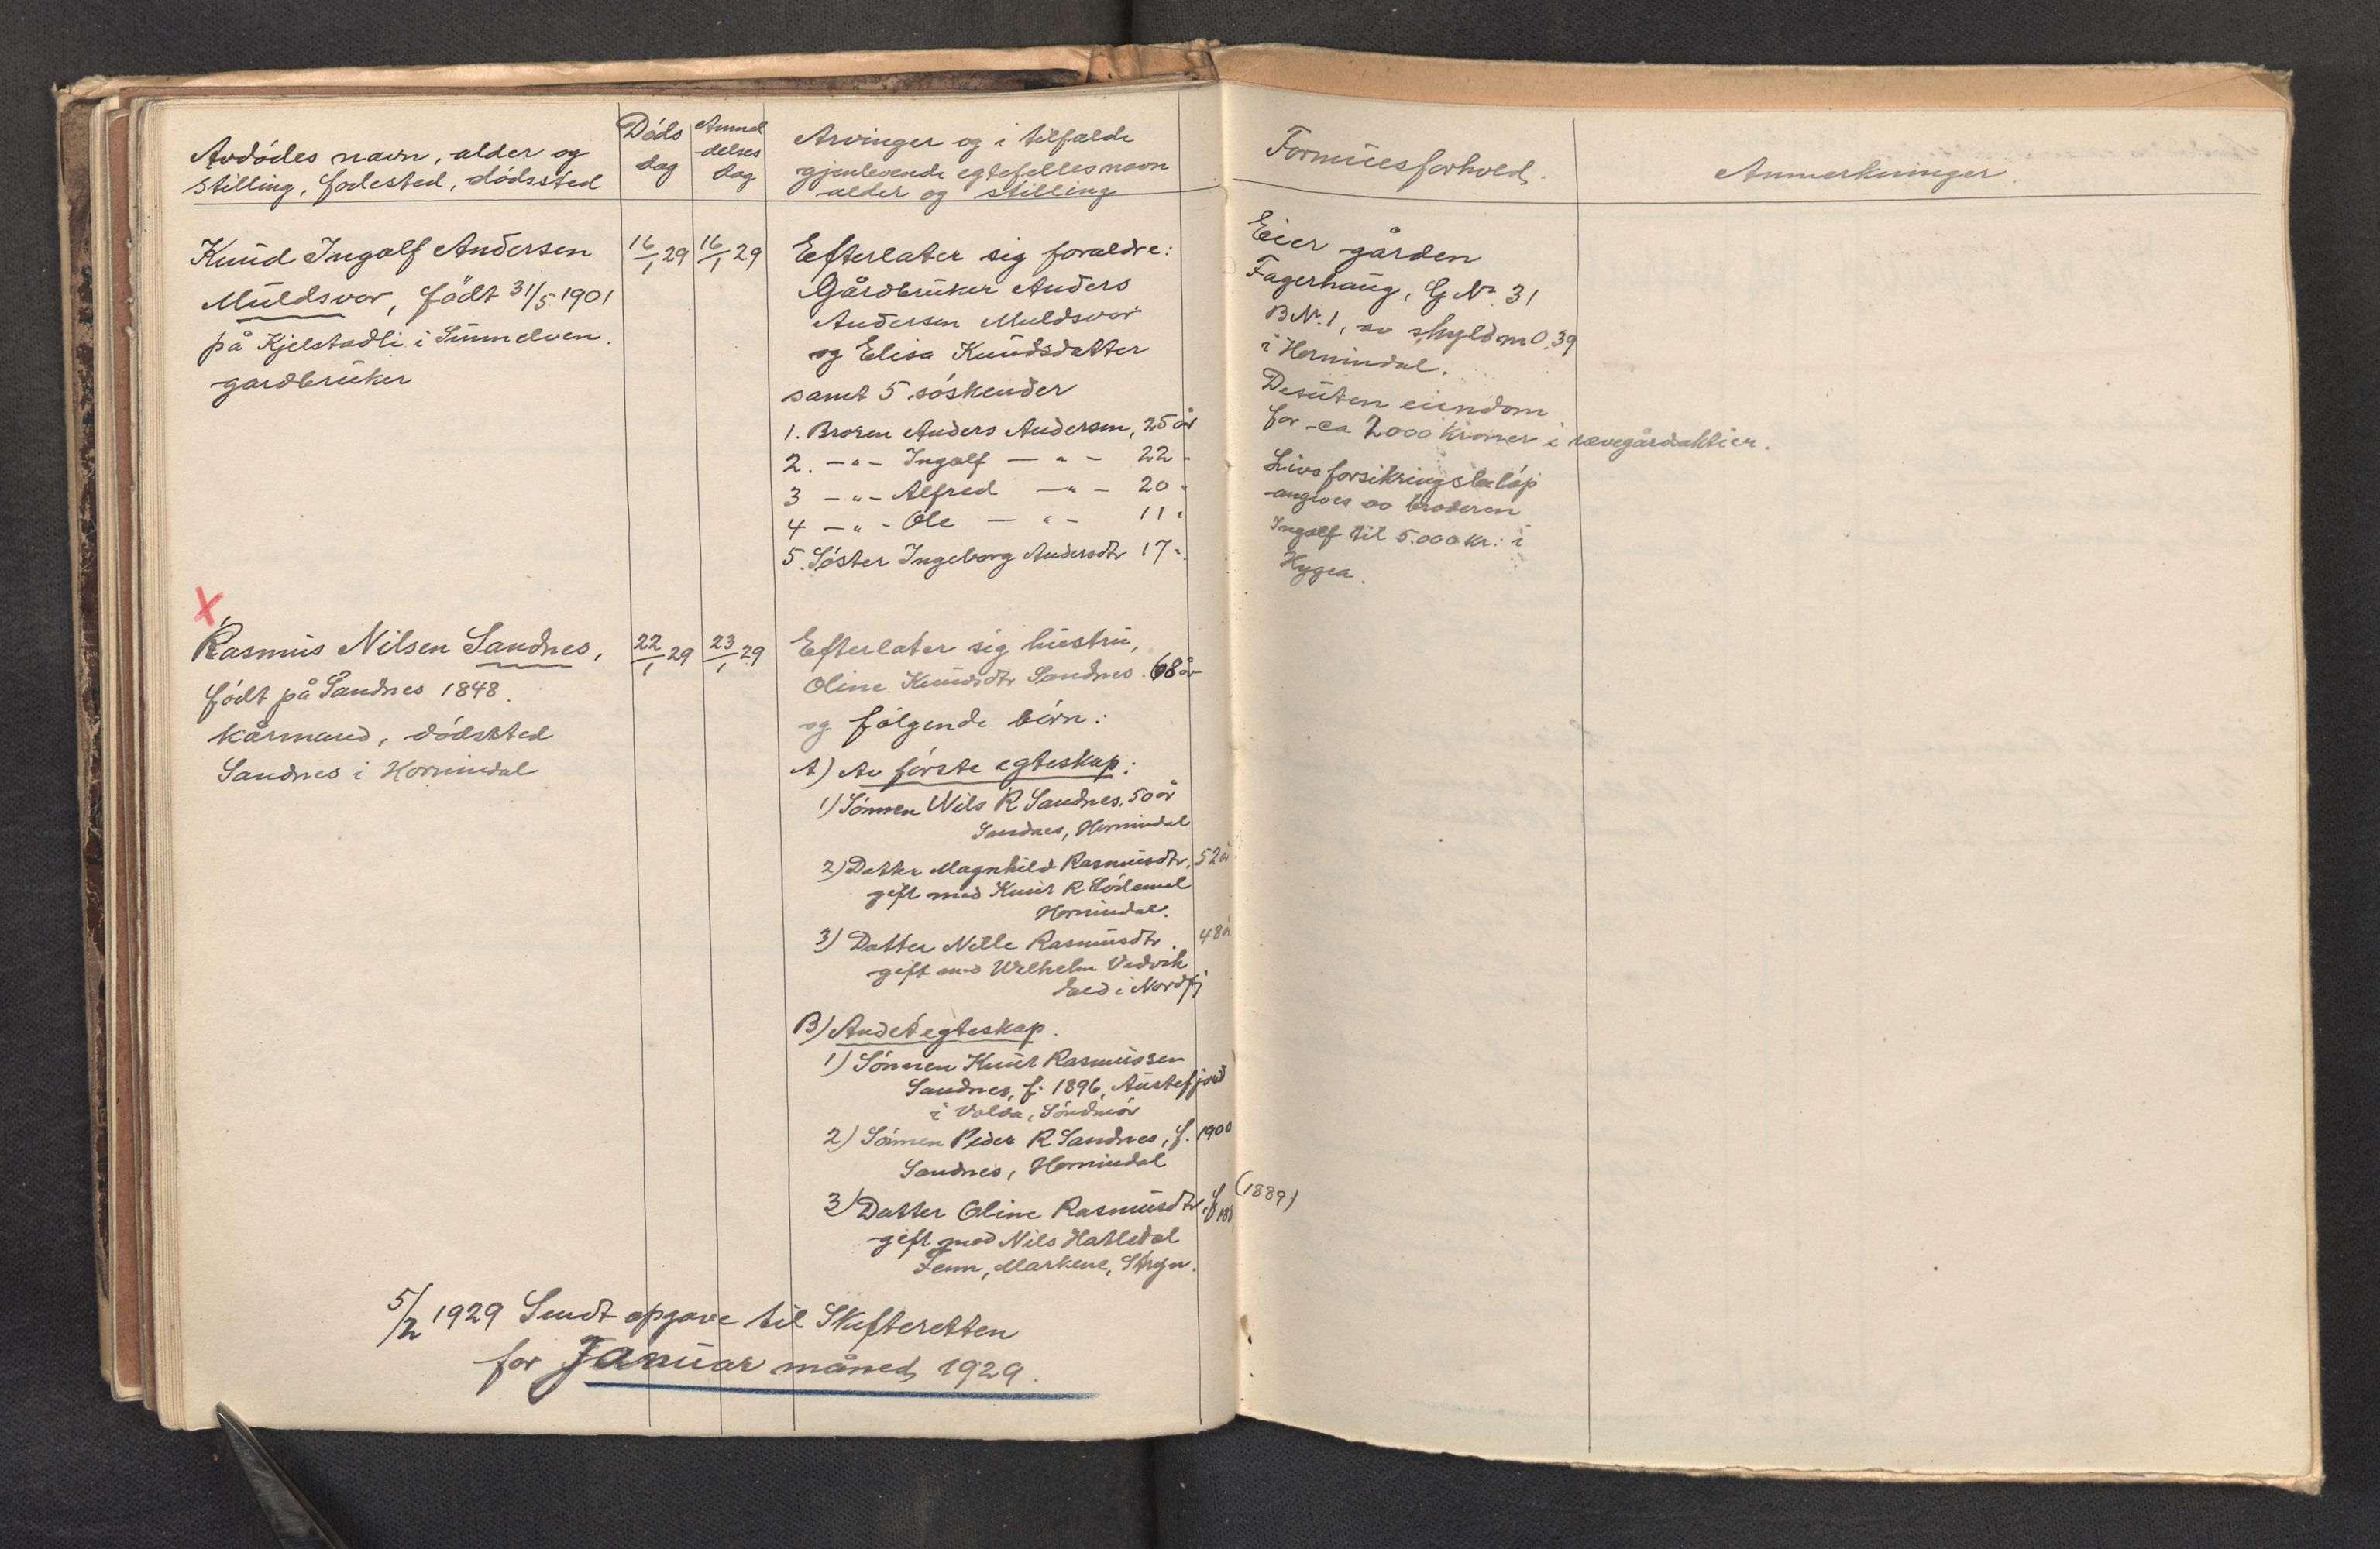 Avdödes navn, alder og
stilling, fødested, dødssted
Döds
dag
Anmel
-delses
dag
Arvinger og i tilfælde
gjenlevende egtefellesnavn
alder og stilling
Formuesforhold.
Anmerkninger.
Knud Ingolf Andersen
Muldsvor, född 31/5 1901
på Kjelstadli i Sunnelven.
gardbruker
16/1 29
16/1 29
Efterlater sig foreldre:
Gårdbruker Anders
Andersen Muldsvor
og Elisa Knudsdatter
samt 5 söskender
1. Broren Anders Andersen, 25 år
2. -"- Ingolf -"- 22 "
3 -"- Alfred -"- 20 "
4 -"- Ole -"- 11 "
5. Söster Ingeborg Andersdtr 17 "
Eier gården
Fagerhaug, G Nr. 31
B Nr. 1, av skyld m 0,39
i Hornindal.
Desuten eiendom
for ca 2000 kroner i revegårdaktier.
Livsforsikringsbelöp
angives av broderen
Ingolf til 5.000 kr. i
Hygea.
X
Rasmus Nilsen Sandnes,
född på Sandnes 1848.
kårmand, dödssted
Sandnes i Hornindal
22/1 29
23/1 29
Efterlater sig hustru,
Oline Knudsdtr Sandnes. 68 år
og følgende börn:
A) Av förste egteskap:
1) Sönnen Nils R Sandnes, 50 år
Sandnes, Hornindal
2) Datter Magnhild Rasmusdtr. 52 år
gift med Knut R Lödemel
Hornindal.
3) Datter Nille Rasmusdtr. 48 år
gift med Wilhelm Vedvik
Eid i Nordfj
B) Andet egteskap.
1) Sönnen Knut Rasmussen
Sandnes, f. 1896, Austefjord
i Volda, Söndmör
2) Sönnen Peder R Sandnes, f. 1900
Sandnes, Hornindal
3) Datter Oline Rasmusdtr, f 188 (1889)
gift med Nils Hatledal
Tenn, Markene, Stryn.
5/2 1929 Sendt opgave til Skifteretten
for Januar måned 1929.